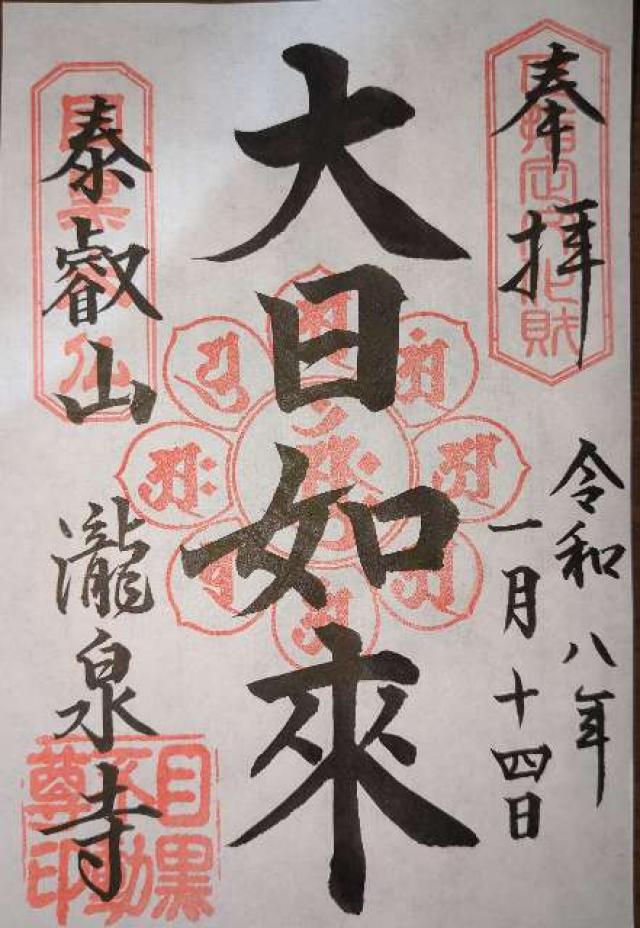 奉拝
令和八年
一月十四日
大日如來
泰叡山
瀧泉寺
目黒
不動
尊印